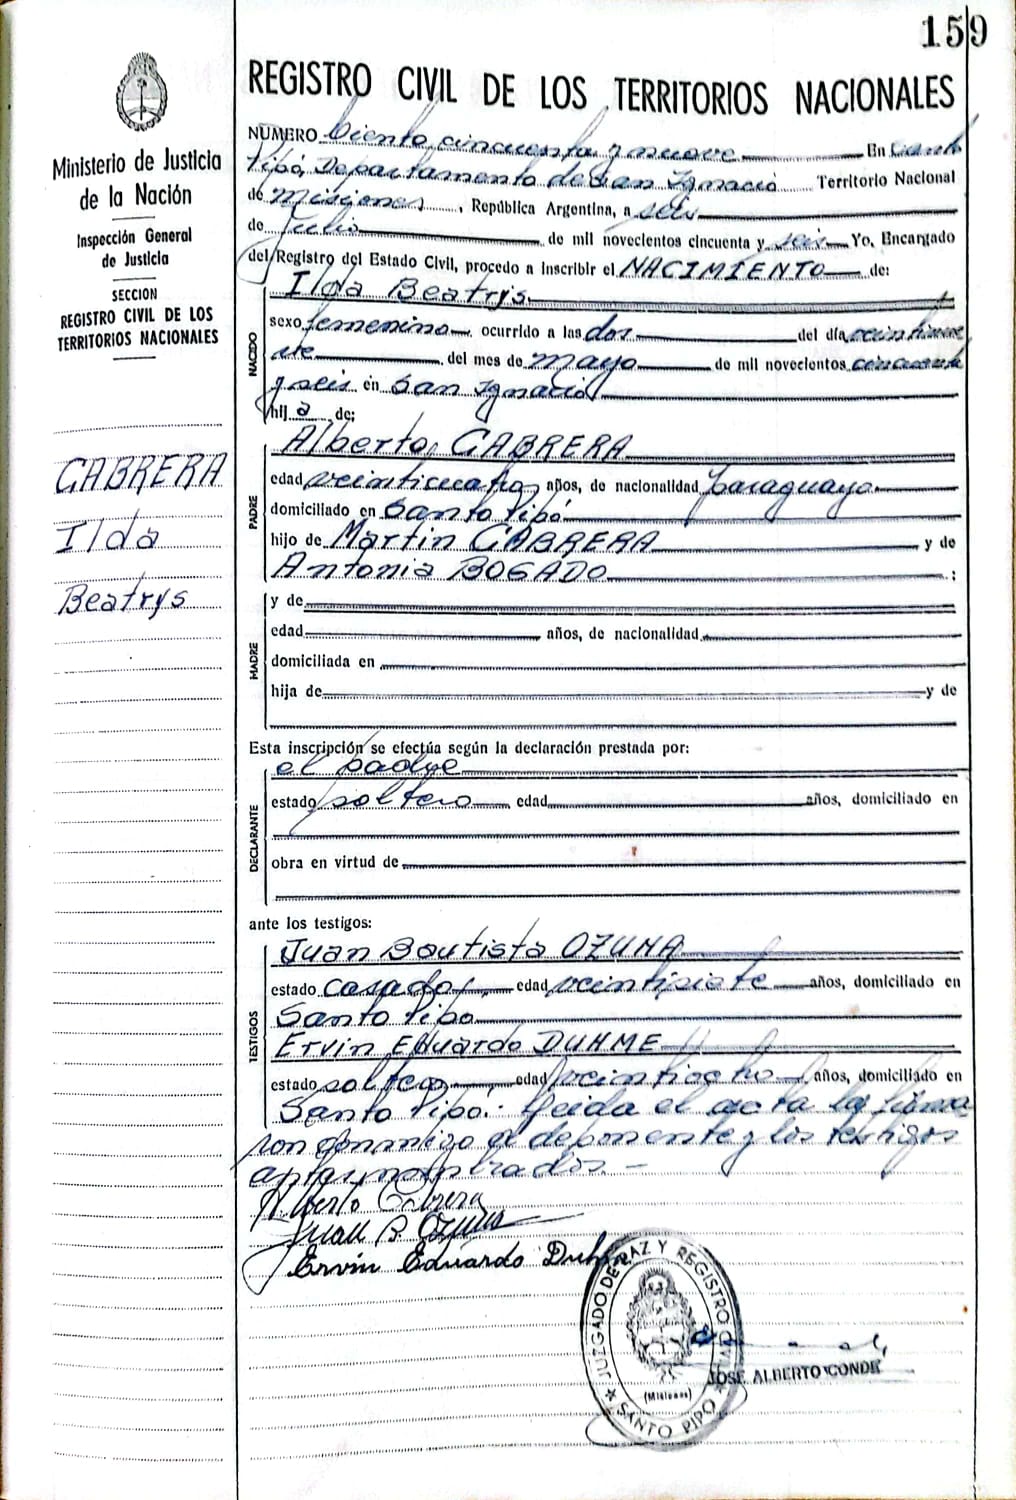 159
REGISTRO CIVIL DE LOS TERRITORIOS NACIONALES
Ministerio de Justicia
de la Nación
Inspección General
de Justicia
SECCION
REGISTRO CIVIL DE LOS
TERRITORIOS NACIONALES
CABRERA
Ilda
Beatrys
NUMERO Ciento cincuenta y nueve En Santo
Pipó, Departamento de San Ignacio Territorio Nacional
de Misiones, República Argentina, a seis
de Julio de mil novecientos cincuenta y seis Yo, Encargado
del Registro del Estado Civil, procedo a inscribir el NACIMIENTO de:
NACIDO
Ilda Beatrys
sexo femenino ocurrido a las dos del día veintinue
ve del mes de Mayo de mil novecientos cincuenta
y seis en San Ignacio
hija de:
PADRE
Alberto CABRERA
edad veinticuatro años, de nacionalidad paraguaya
domiciliado en Santo Pipó
hijo de Martin CABRERA y de
Antonia BOGADO ;
MADRE
y de
edad años, de nacionalidad
domiciliada en
hija de y de
Esta inscripción se efectúa según la declaración prestada por:
DECLARANTE
el padre
estado soltero edad años, domiciliado en
obra en virtud de
ante los testigos:
TESTIGOS
Juan Bautista OZUNA
estado casado, edad veintisiete años, domiciliado en
Santo Pipo
Ervin Eduardo DUHME
estado soltero edad veintiocho años, domiciliado en
Santo Pipó. Leida el acta la firma
ron conmigo el deponente y los testigos
nombrados. –
Alberto Cabrera
Juan B. Ozuna
Ervin Eduardo Duhme
JUZGADO DE PAZ Y REGISTRO CIVIL
(Misiones)
SANTO PIPO
JOSE ALBERTO CONDE